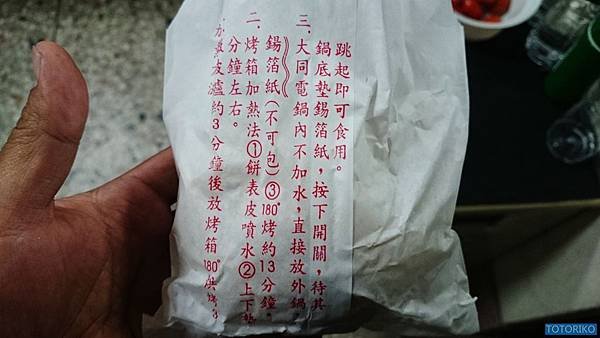 波爐約3分鐘後放烤箱180°烘烤3
分鐘左右。
二、烤箱加熱法①餅表皮噴水②上下墊
錫箔紙(不可包)③180°烤約13分鐘。
三、大同電鍋內不加水，直接放外鍋，
鍋底墊錫箔紙，按下開關，待其
跳起即可食用。
TOTORIKO